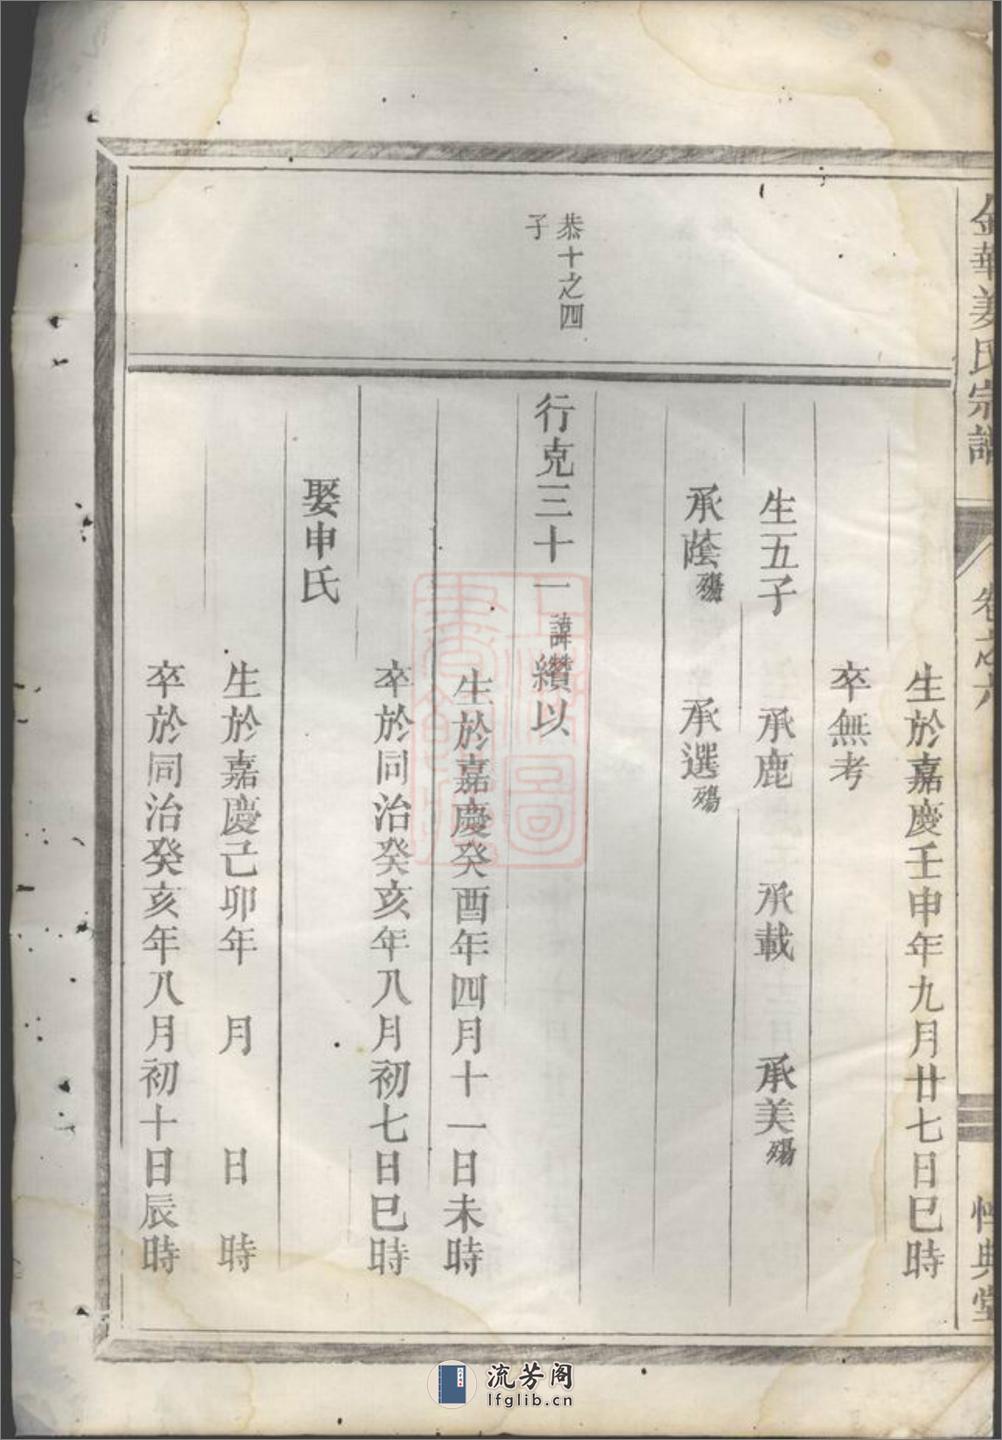 金華姜氏宗譜
卷之六
惇典堂
生於嘉慶壬申年九月廿七日巳時
卒無考
生五子 承鹿 承載 承美殤
承蔭殤 承選殤
恭十之四
子
行克三十一 諱纘以
生於嘉慶癸酉年四月十一日未時
卒於同治癸亥年八月初七日巳時
娶申氏
生於嘉慶己卯年 月 日 時
卒於同治癸亥年八月初十日辰時
上海圖
書館藏
流芳阁
lfglib.cn